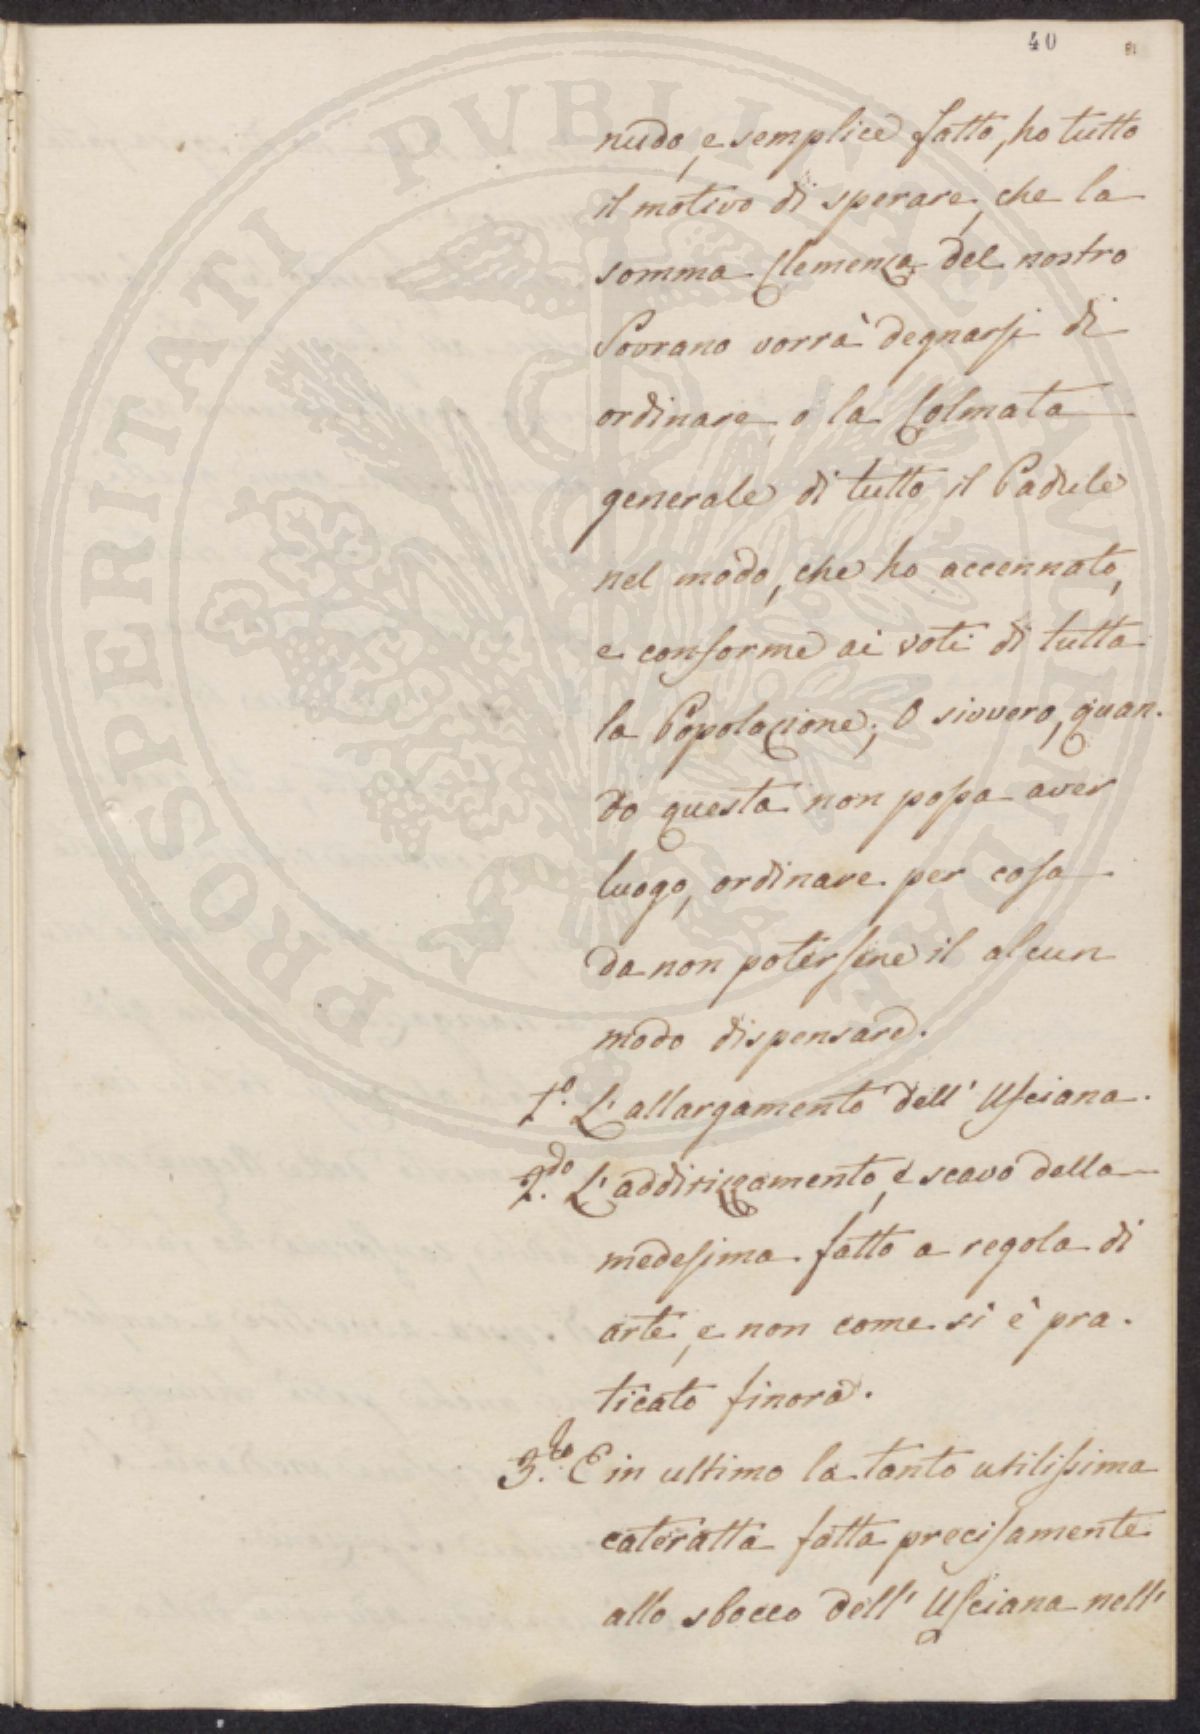 40
81
PROSPERITATI PVBLICAE AVGENDAE
nudo, e semplice fatto, ho tutto
il motivo di sperare, che la
somma Clemenza del nostro
Sovrano vorrà degnarsi di
ordinare, o la Colmata
generale di tutto il Padule
nel modo, che ho accennato,
e conforme ai voti di tutta
la Popolazione; O sivvero, quan-
do questa non possa aver
luogo, ordinare per cosa
da non potersene il alcun
modo dispensare.
1.o L'allargamento dell' Usciana.
2.do L'addirizzamento, e scavo della
medesima fatto a regola di
arte, e non come si è pra-
ticato finora.
3.zo E in ultimo la tanto utilissima
cateratta fatta precisamente
allo sbocco dell' Usciana nell'